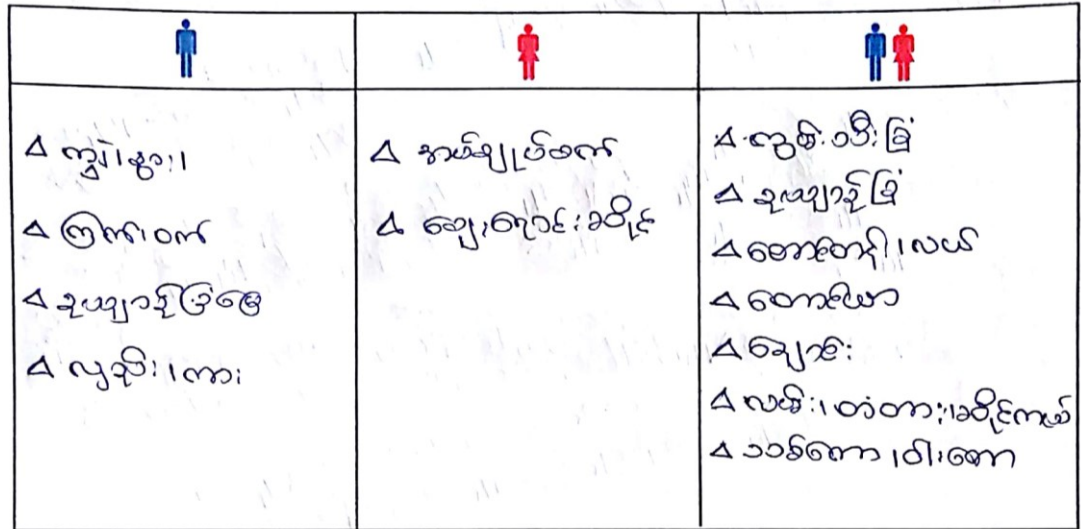 Δ ကျွဲ၊နွား၊
Δ ကြက်၊ဝက်
Δ ဥယျာဉ်ခြံမြေ
Δ လှည်း၊ကား
Δ အပ်ချုပ်စက်
Δ စျေးရောင်းခဆိုင်
Δ ကွမ်းသီးခြံ
Δ ဥယျာဉ်ခြံ
Δ ၊လယ်
Δ တောင်ယာ
Δ ချောင်း
Δ လမ်း၊တံတား၊
Δ သစ်တော၊ဝါးတော